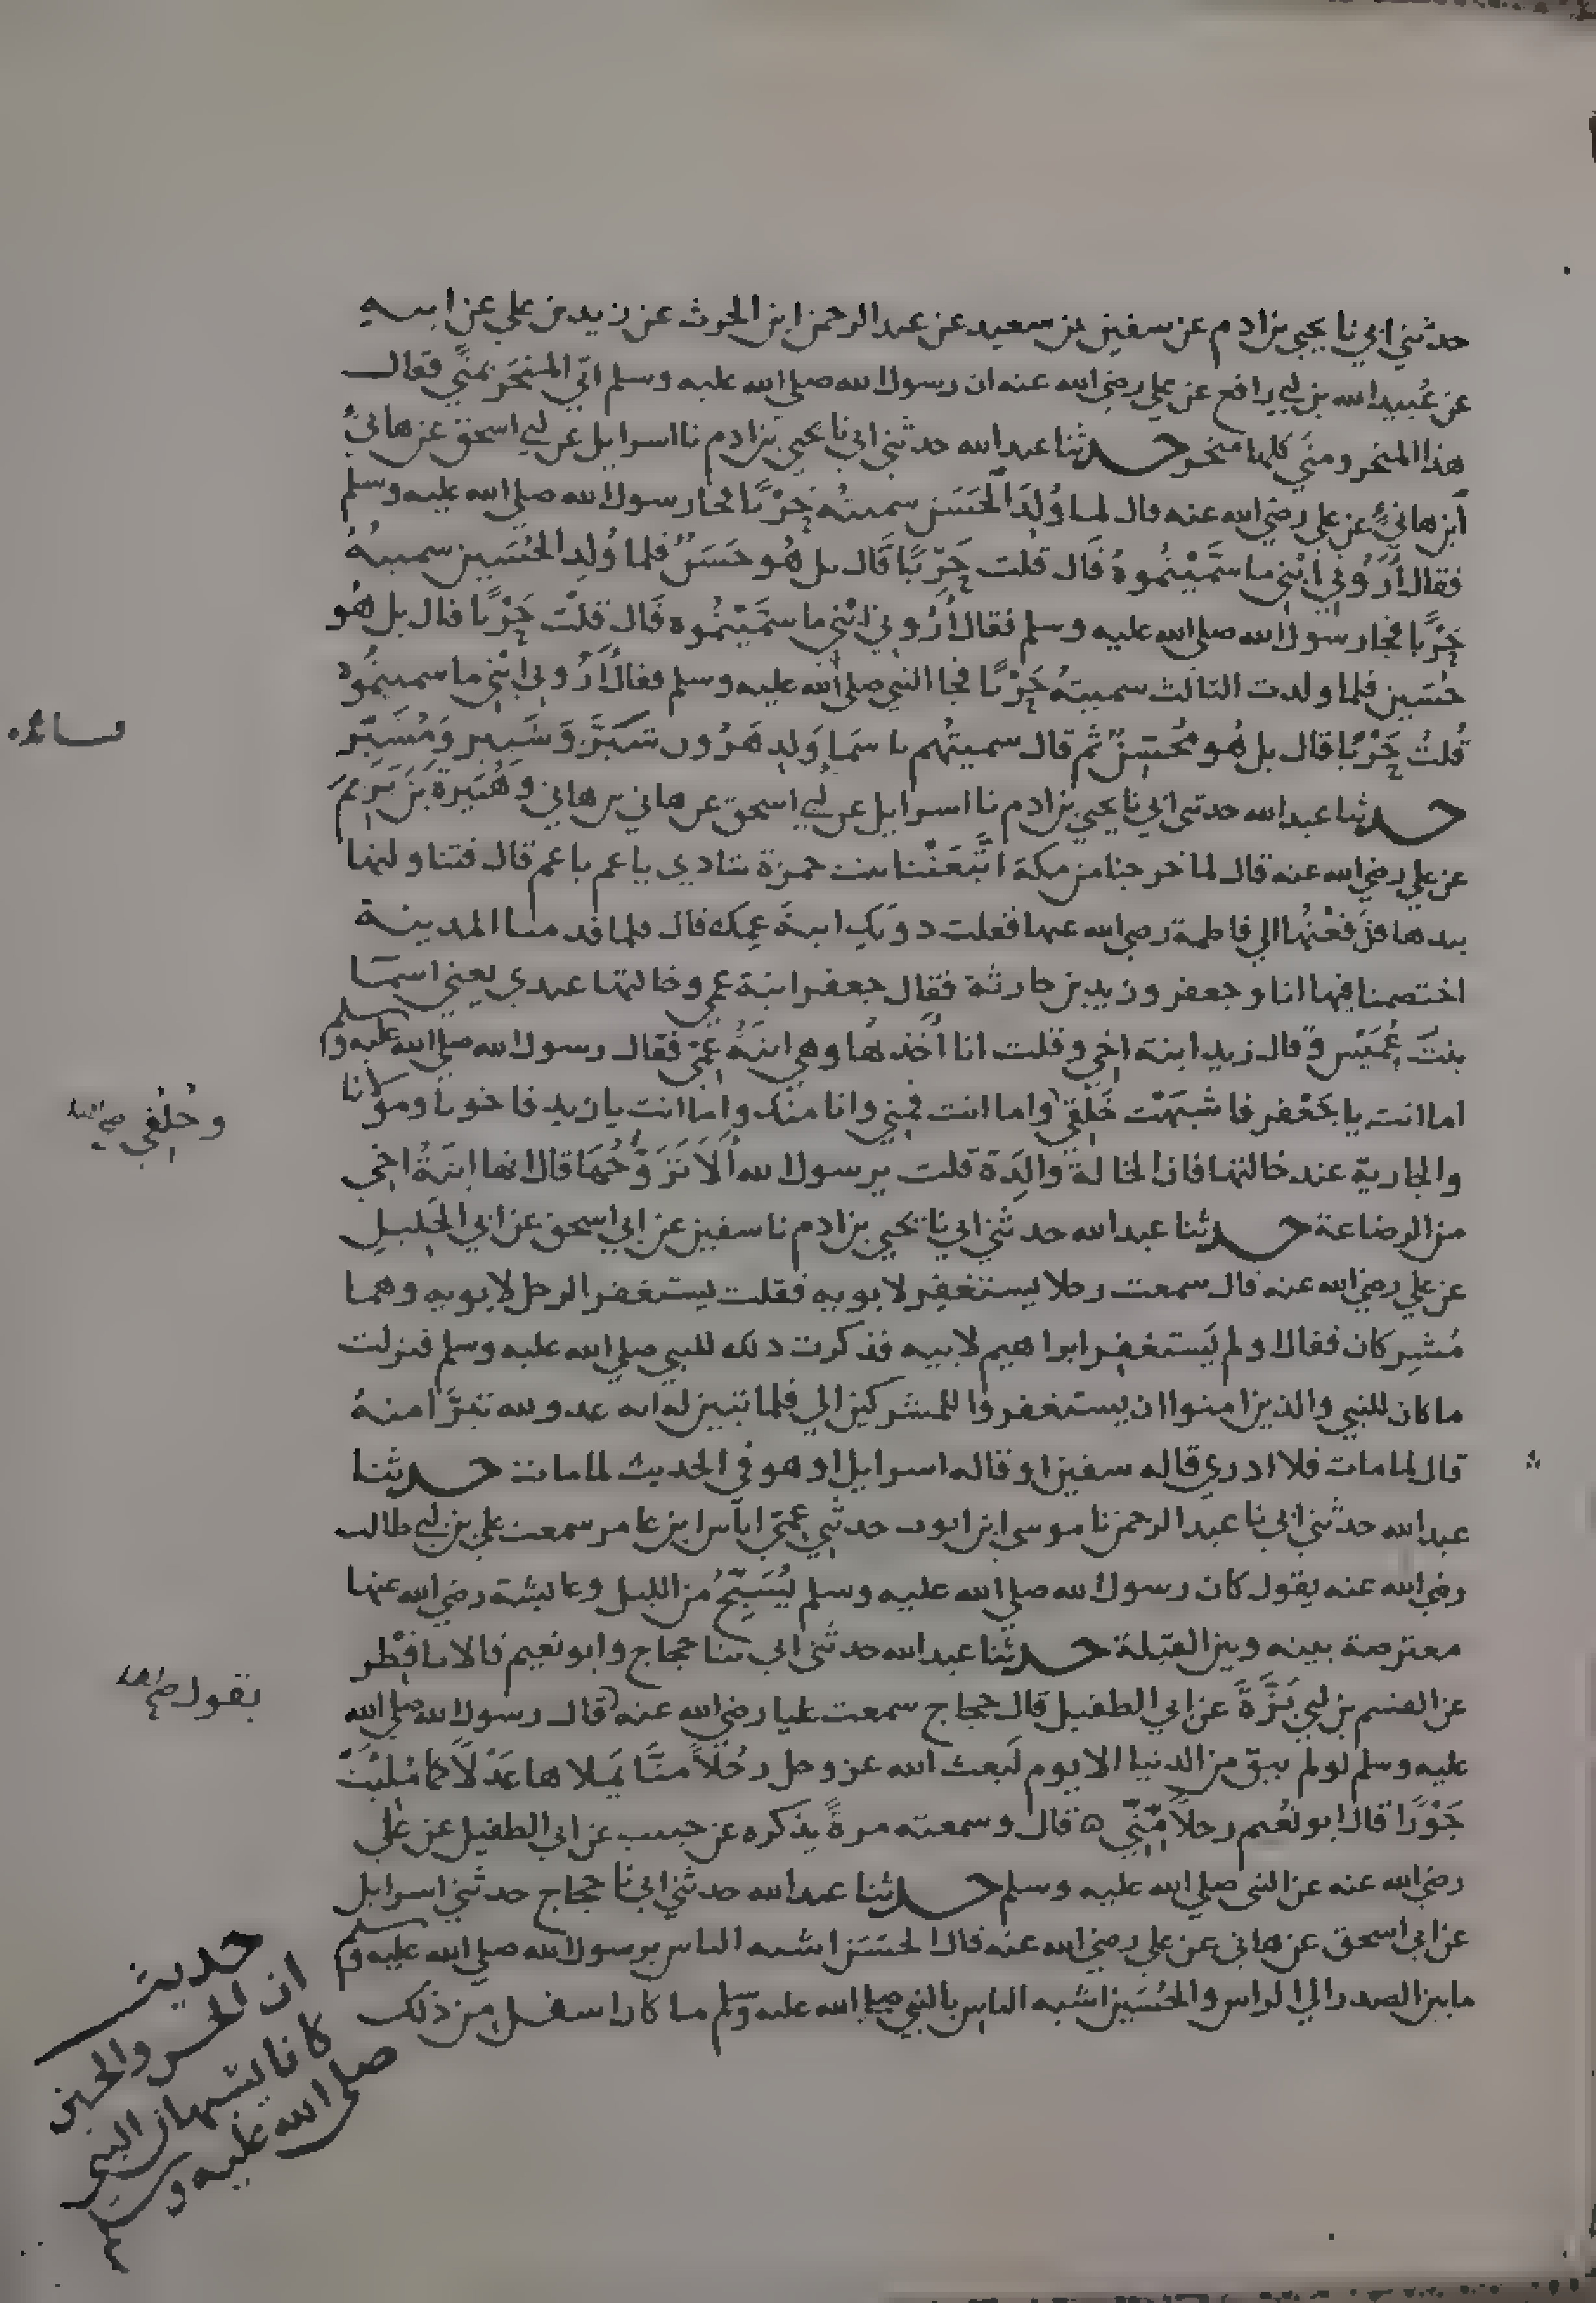 حدثني ابي نا يحيى بن ادم عن سفين بن سعيد عن عبد الرحمن ابن الحرث عن زيد بن علي عن ابيه
عن عُبيد الله بن ابي رافع عن علي رضي الله عنه ان رسول الله صلى الله عليه وسلم اتى المنحَر بمنًى فقال
هذا المنحر ومنًى كلها منحر حدثنا عبد الله حدثني ابي نا يحيى بن ادم نا اسرايل عن ابي اسحق عن هانئ
ابن هانئ عن علي رضي الله عنه قال لما وُلِدَ الحَسَن سميته حَرْبًا فجا رسول الله صلى الله عليه وسلم
فقال اَرُوني ابْني ما سَمَّيْتُموهُ قال قلت حَرْبًا قال بل هُو حَسَنٌ فلما وُلِد الحُسَين سميتهُ
حَرْبًا فجا رسول الله صلى الله عليه وسلم فقال اَرُوني ابْني ما سَمَّيْتُموه قال قلتُ حَرْبًا قال بل هُو
حُسَين فلما ولدت الثالث سميتهُ حَرْبًا فجا النبي صلى الله عليه وسلم فقال اَرُوني ابْني ما سميتمُوه
قُلتُ حَرْبًا قال بل هُو مُحَسِّنٌ ثم قال سميتُهم باسمَا وَلد هَرُون شَبَّرَ وَشَبِير وَمُشَبِّر
حدثنا عبد الله حدثني ابي نا يحيى بن ادم نا اسرايل عن ابي اسحق عن هاني بن هاني وهُبَيرةَ بن يَرِيمَ
عن علي رضي الله عنه قال لما خرجنا من مكة اتَّبَعَتْنا بنت حمزة تنادي يا عم يا عم قال فتناولتها
بيدها فدَفَعْتُها الى فاطمة رضي الله عنها فقلت دونكِ ابنةَ عمِّك قال فلما قدمنا المدينة
اختصمنا فيها انا وجعفر وزيد بن حارثة فقال جعفر ابنة عمي وخالتها عندي يعني اسمَا
بنتَ عُمَيْس وقال زيد ابنة اخي وقلت انا اخذتُها وهي ابنةُ عَمِّي فقال رسول الله صلى الله عليه وسلم
اما انت يا جَعْفر فاشبَهْت خَلْقي واما انت فمني وانا منك واما انت يا زيد فاخونا ومولانا
والجارية عند خالتها فان الخالة وَالِدَة قلت يرسول الله اَلَا تَزَوَّجُهَا قال انها ابنَةُ اخي
من الرضاعة حدثنا عبد الله حدثني ابي نا يحيى بن ادم نا سفين عن ابي اسحق عن ابي الخَليل
عن علي رضي الله عنه قال سمعت رجلا يستغفِر لابويه فقلت يستغفر الرجل لابويه وهما
مُشركان فقال او لم يَستغفِر ابراهيم لابيه فذكرت ذلك للنبي صلى الله عليه وسلم فنزلت
ما كان للنبي والذين امنوا ان يستغفروا للمشركين الى فلما تبين له انه عدو لله تبرَّا منهُ
قال لما مات فلا ادري قاله سفين او قاله اسرايل او هو في الحديث لما مات حدثنا
عبد الله حدثني ابي نا عبد الرحمن نا موسى ابن ايوب حدثني عمي اياس ابن عامر سمعت علي بن ابي طالب
رضي الله عنه يقول كان رسول الله صلى الله عليه وسلم يُسَبِّحُ من الليل وعائشة رضي الله عنها
معترضة بينه وبين القبلة حدثنا عبد الله حدثني ابي ثنا حجاج وابو نعيم قالا نا فِطْر
عن القسم بن ابي بَزَّةَ عن ابي الطفيل قال حجاج سمعت عليا رضي الله عنه قال رسول الله صلى الله
عليه وسلم لو لم يبق من الدنيا الا يوم لَبعث الله عز وجل رجُلاً منَّا يَملاها عَدْلاً كما مُلِيَتْ
جَوْرًا قال ابو نُعيم رجلاً مِّنِّي ه قال وسمعته مرةً يذكره عن حبيب عن ابي الطفيل عن علي
رضي الله عنه عن النبي صلى الله عليه وسلم حدثنا عبد الله حدثني ابي نا حجاج حدثني اسرايل
عن ابي اسحق عن هاني عن علي رضي الله عنه قال الحَسَن اشبه الناس برسول الله صلى الله عليه وسلم
ما بين الصدر الى الراس والحُسَين اشبه الناس بالنبي صلى الله عليه وسلم ما كان اسفل من ذلك
وخُلُقي صح
يقول صح
حديث
ان الحسن والحسين
كانا يشبهان النبي
صلى الله عليه وسلم